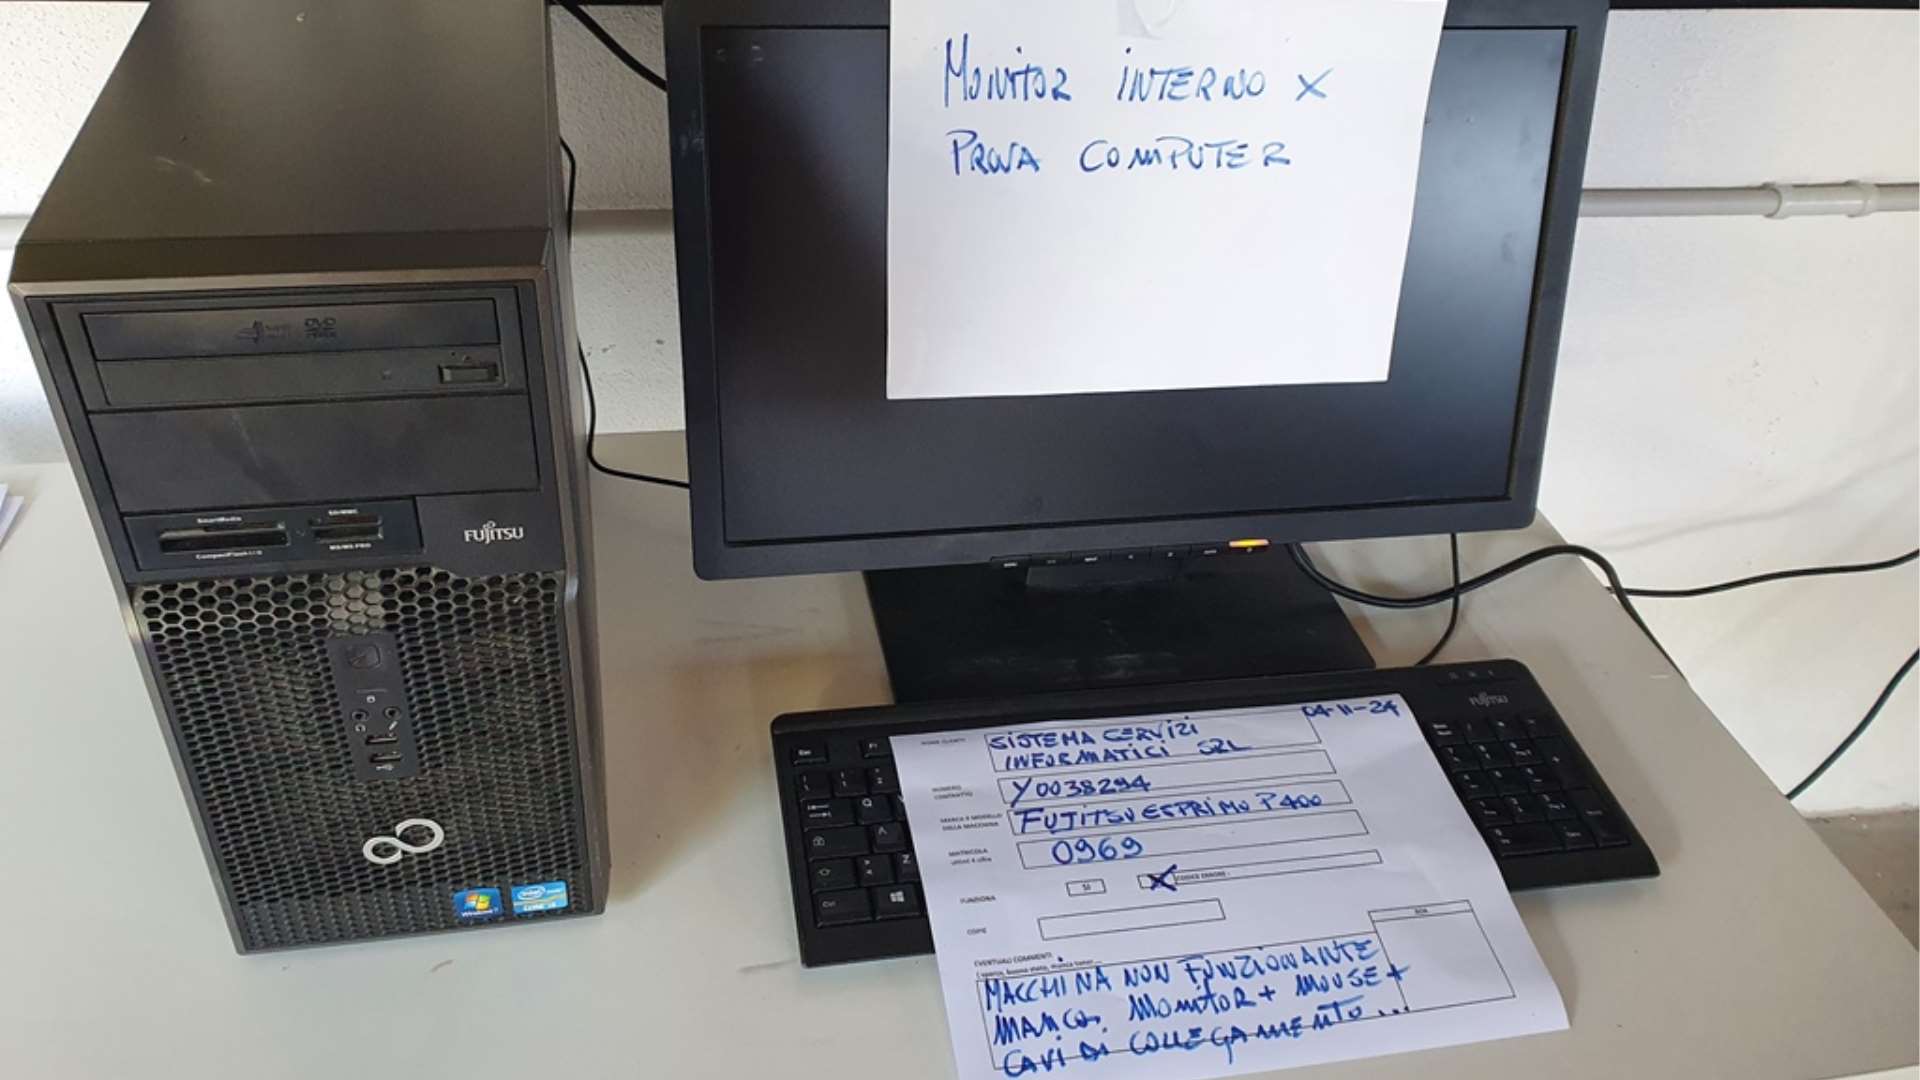 MONITOR INTERNO X
PROVA COMPUTER
DVD
SmartMedia
CompactFlash I/II
SD/MMC
MS/MS PRO
FUJITSU
Windows 7
intel
CORE i3
FUJITSU
04-11-24
NOME CLIENTE
SISTEMA SERVIZI
INFORMATICI SRL
NUMERO
CONTRATTO
Y0038294
MARCA E MODELLO
DELLA MACCHINA
FUJITSU ESPRIMO P400
MATRICOLA
ultime 4 cifre
0969
FUNZIONA
SI
X
CODICE ERRORE:
COPIE
EVENTUALI COMMENTI
MACCHINA NON FUNZIONANTE
MANCA MONITOR + MOUSE +
CAVI DI COLLEGAMENTO...